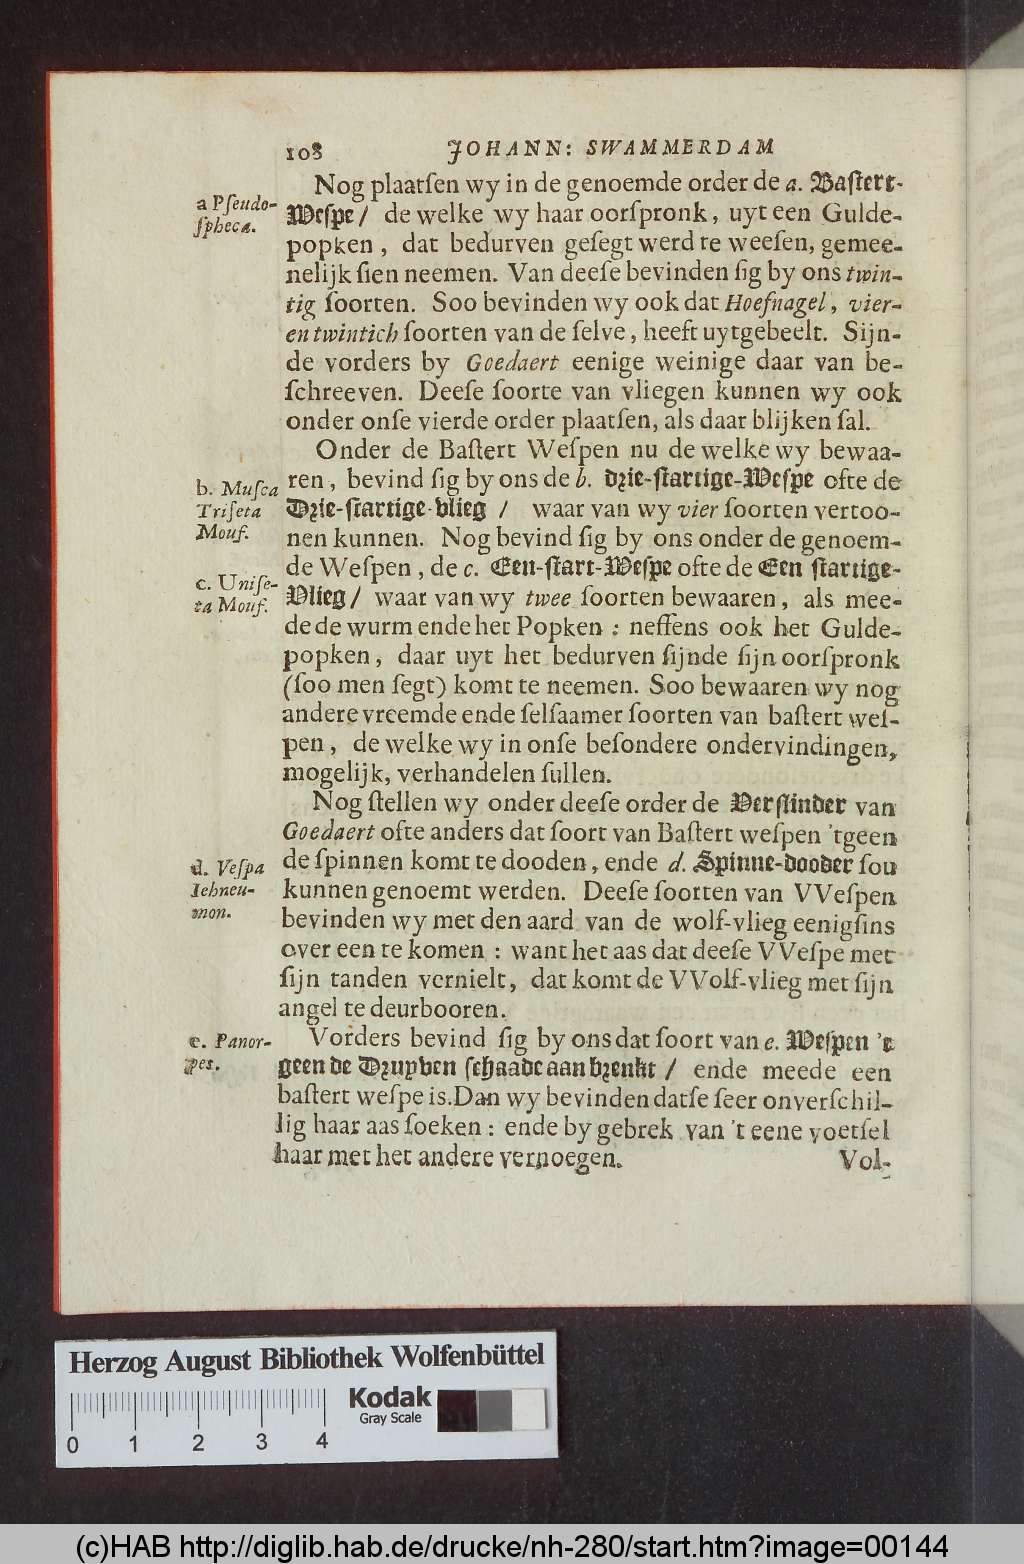 108 JOHANN: SWAMMERDAM
Nog plaatſen wy in de genoemde order de a. Baſtert-
a Pſeudo-
ſpheca.
Weſpe / de welke wy haar oorſpronk, uyt een Gulde-
popken, dat bedurven geſegt werd te weeſen, gemee-
nelijk ſien neemen. Van deeſe bevinden ſig by ons twin-
tig ſoorten. Soo bevinden wy ook dat Hoefnagel, vier-
en twintich ſoorten van de ſelve, heeft uytgebeelt. Sijn-
de vorders by Goedaert eenige weinige daar van be-
ſchreeven. Deeſe ſoorte van vliegen kunnen wy ook
onder onſe vierde order plaatſen, als daar blijken ſal.
Onder de Baſtert Weſpen nu de welke wy bewaa-
ren, bevind ſig by ons de b. drie-ſtartige-Weſpe ofte de
b. Muſca
Triſeta
Mouf.
Drie-ſtartige-vlieg / waar van wy vier ſoorten vertoo-
nen kunnen. Nog bevind ſig by ons onder de genoem-
de Weſpen, de c. Een-ſtart-Weſpe ofte de Een ſtartige-
c. Uniſe-
ta Mouf.
Vlieg / waar van wy twee ſoorten bewaaren, als mee-
de de wurm ende het Popken: neffens ook het Gulde-
popken, daar uyt het bedurven ſijnde ſijn oorſpronk
(ſoo men ſegt) komt te neemen. Soo bewaaren wy nog
andere vreemde ende ſelſaamer ſoorten van baſtert weſ-
pen, de welke wy in onſe beſondere ondervindingen,
mogelijk, verhandelen ſullen.
Nog ſtellen wy onder deeſe order de Verſlinder van
Goedaert ofte anders dat ſoort van Baſtert weſpen 'tgeen
de ſpinnen komt te dooden, ende d. Spinne-dooder ſou
d. Veſpa
Ichneu-
mon.
kunnen genoemt werden. Deeſe ſoorten van VVeſpen
bevinden wy met den aard van de wolf-vlieg eenigſins
over een te komen: want het aas dat deeſe VVeſpe met
ſijn tanden vernielt, dat komt de VVolf-vlieg met ſijn
angel te deurbooren.
Vorders bevind ſig by ons dat ſoort van e. Weſpen 't
e. Panor-
pes.
geen de Druyven ſchaade aan brenkt / ende meede een
baſtert weſpe is. Dan wy bevinden datſe ſeer onverſchil-
lig haar aas ſoeken: ende by gebrek van 't eene voetſel
haar met het andere vernoegen.
Vol-
Herzog August Bibliothek Wolfenbüttel
Kodak
Gray Scale
0 1 2 3 4
(c)HAB http://diglib.hab.de/drucke/nh-280/start.htm?image=00144